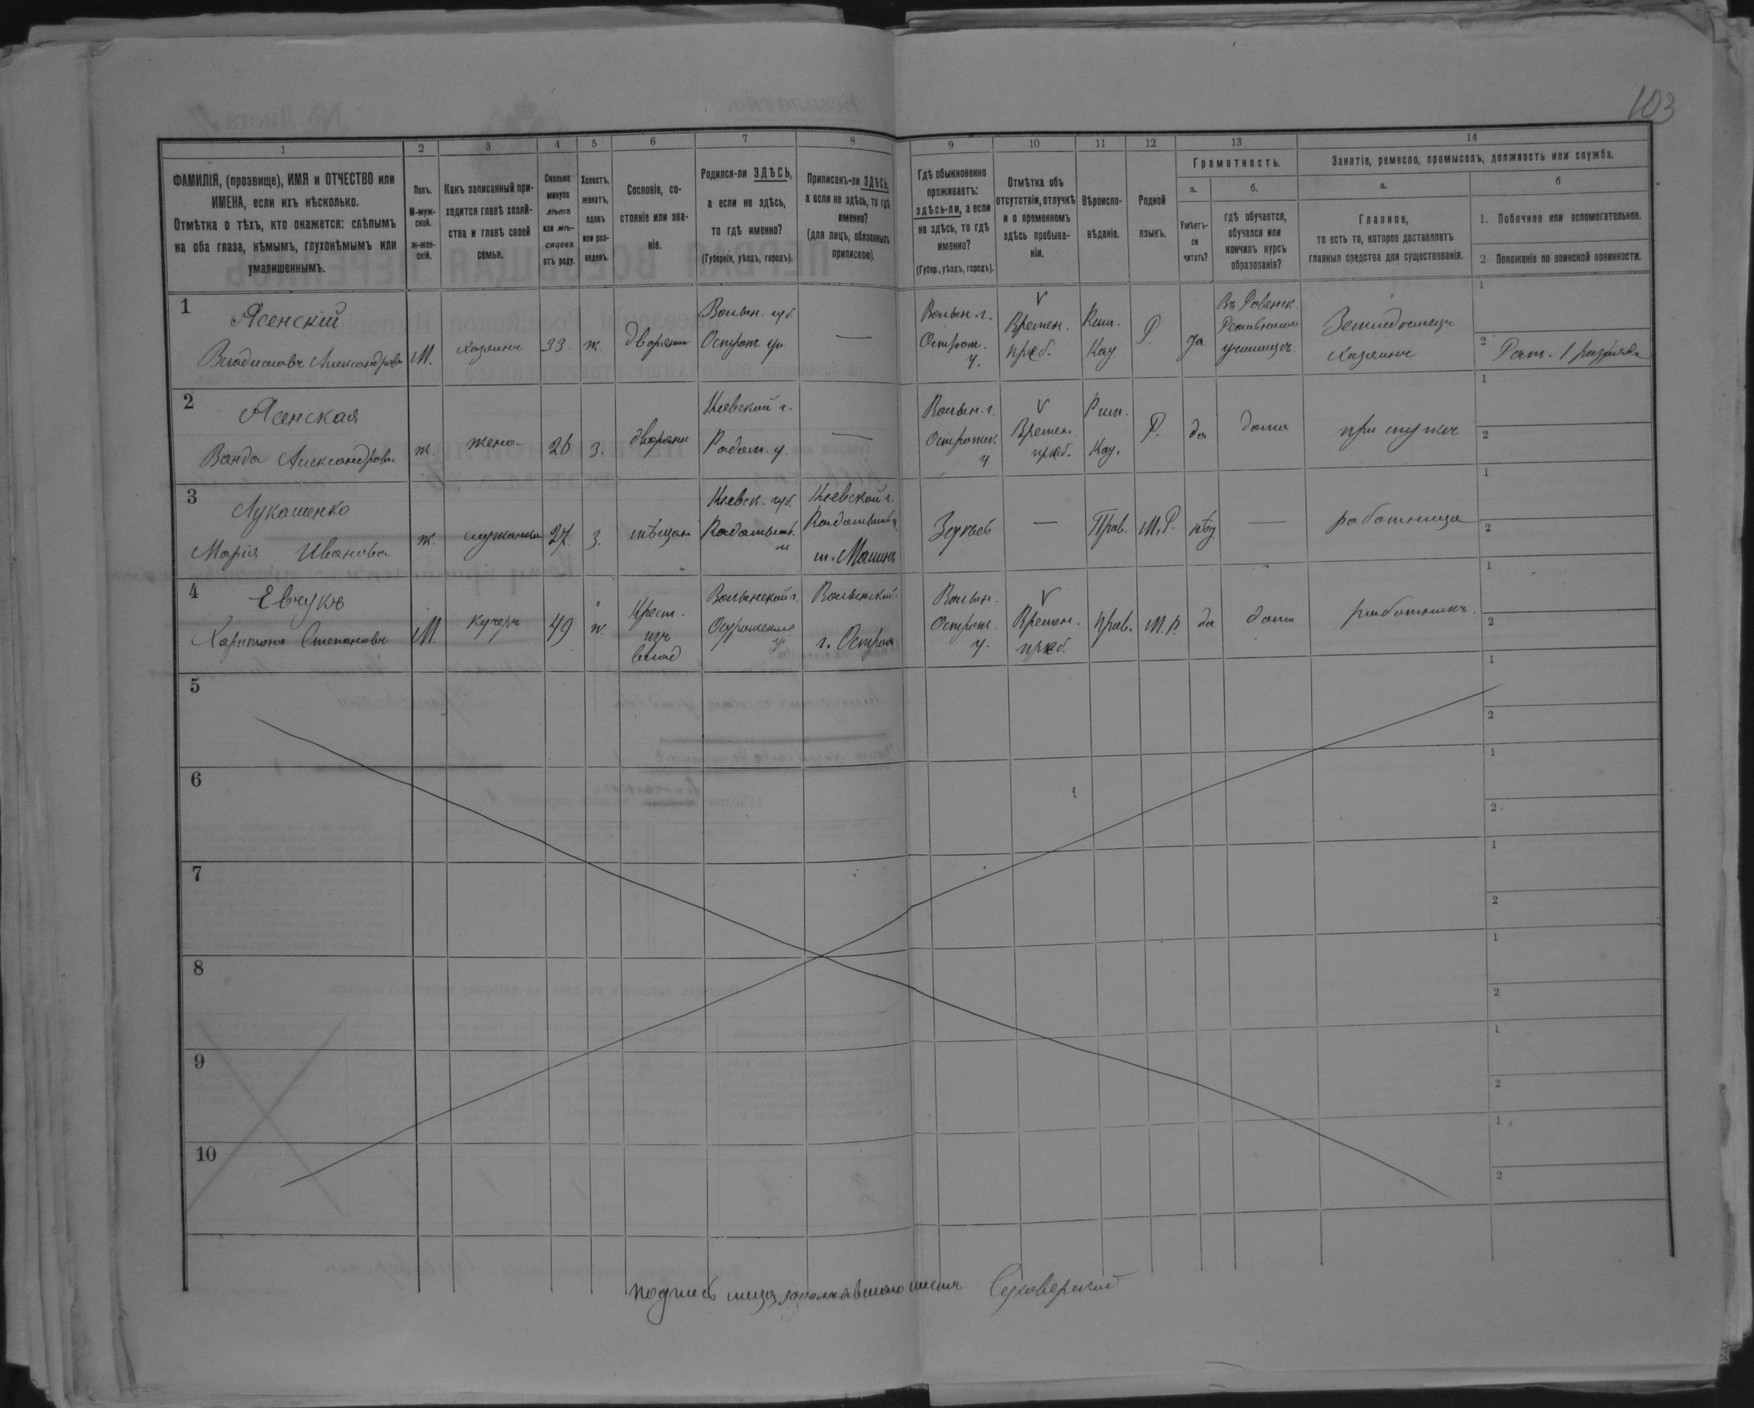 103
1 2 3 4 5 6 7 8 9 10 11 12 13 14
ФАМИЛІЯ, (прозвище), ИМЯ и ОТЧЕСТВО или
ИМЕНА, если ихъ нѣсколько.
Отмѣтка о тѣхъ, кто окажется: слѣпымъ
на оба глаза, нѣмымъ, глухонѣмымъ или
умалишеннымъ.
Полъ.
М-муж-
ской.
ж-жен-
скій.
Какъ записанный при-
ходится главѣ хозяй-
ства и главѣ своей
семьи.
Сколько
минуло
лѣтъ
или мѣ-
сяцевъ
отъ роду.
Холостъ,
женатъ,
вдовъ
или раз-
веденъ.
Сословіе, со-
стояніе или зва-
ніе.
Родился-ли ЗДѢСЬ,
а если не здѣсь,
то гдѣ именно?
(Губернія, уѣздъ, городъ).
Приписанъ-ли ЗДѢСЬ,
а если не здѣсь, то гдѣ
именно?
(для лицъ, обязанныхъ
припискою).
Гдѣ обыкновенно
проживаетъ:
здѣсь-ли, а если
не здѣсь, то гдѣ
именно?
(Губер., уѣздъ, городъ).
Отмѣтка объ
отсутствіи, отлучкѣ
и о временномъ
здѣсь пребыва-
ніи.
Вѣроиспо-
вѣданіе.
Родной
языкъ.
Грамотность.
а.
Умѣетъ-
ли
читать?
б.
гдѣ обучается,
обучался или
кончилъ курсъ
образованія?
Занятіе, ремесло, промыселъ, должность или служба.
а.
Главное,
то есть то, которое доставляетъ
главныя средства для существованія.
б
1. Побочное или вспомогательное.
2 Положеніе по воинской повинности.
1
Ясенскій
Владиславъ Александровъ
М.
хозяинъ
33.
ж.
дворянин
Волын. губ.
Острож. у.
—
Волын. г.
Острож.
у.
V
Времен.
преб.
Рим.
Кат.
Р.
да
Въ Ровенск.
Реальномъ
училищѣ
Землевладелецъ
Хозяинъ
1
2 Рат. 1 разряда
2
Ясенская
Ванда Александрова
ж.
жена
26
з.
дворянк
Кіевской г.
Радом. у.
—
Волын. г.
Острожск.
у
V
Времен.
преб.
Рим.
Кат.
Р.
да
дома
при мужѣ
1
2
3
Лукашенко
Марія Иванова
ж.
служанка
27.
з.
мѣщан
Кіевск. губ.
Радомысл.
у
Кіевской г.
Радомысл. у
м. Малинъ
—
Прав.
М.Р.
нѣт
—
работница
1
2
4
Евчукъ
Харитонъ Степановъ
М.
кучеръ
49
ж.
Крест.
изъ
Волынской г.
Острожскаго
у
Волынской
г. Острога
Волын.
Острож.
у.
V
Времен.
преб.
Прав.
М.Р.
да
дома
работникъ.
1
2
5
1
2
6
1
2
7
1
2
8
1
2
9
1
2
10
1
2
подпись лица заполнявшаго листъ Суховерскій